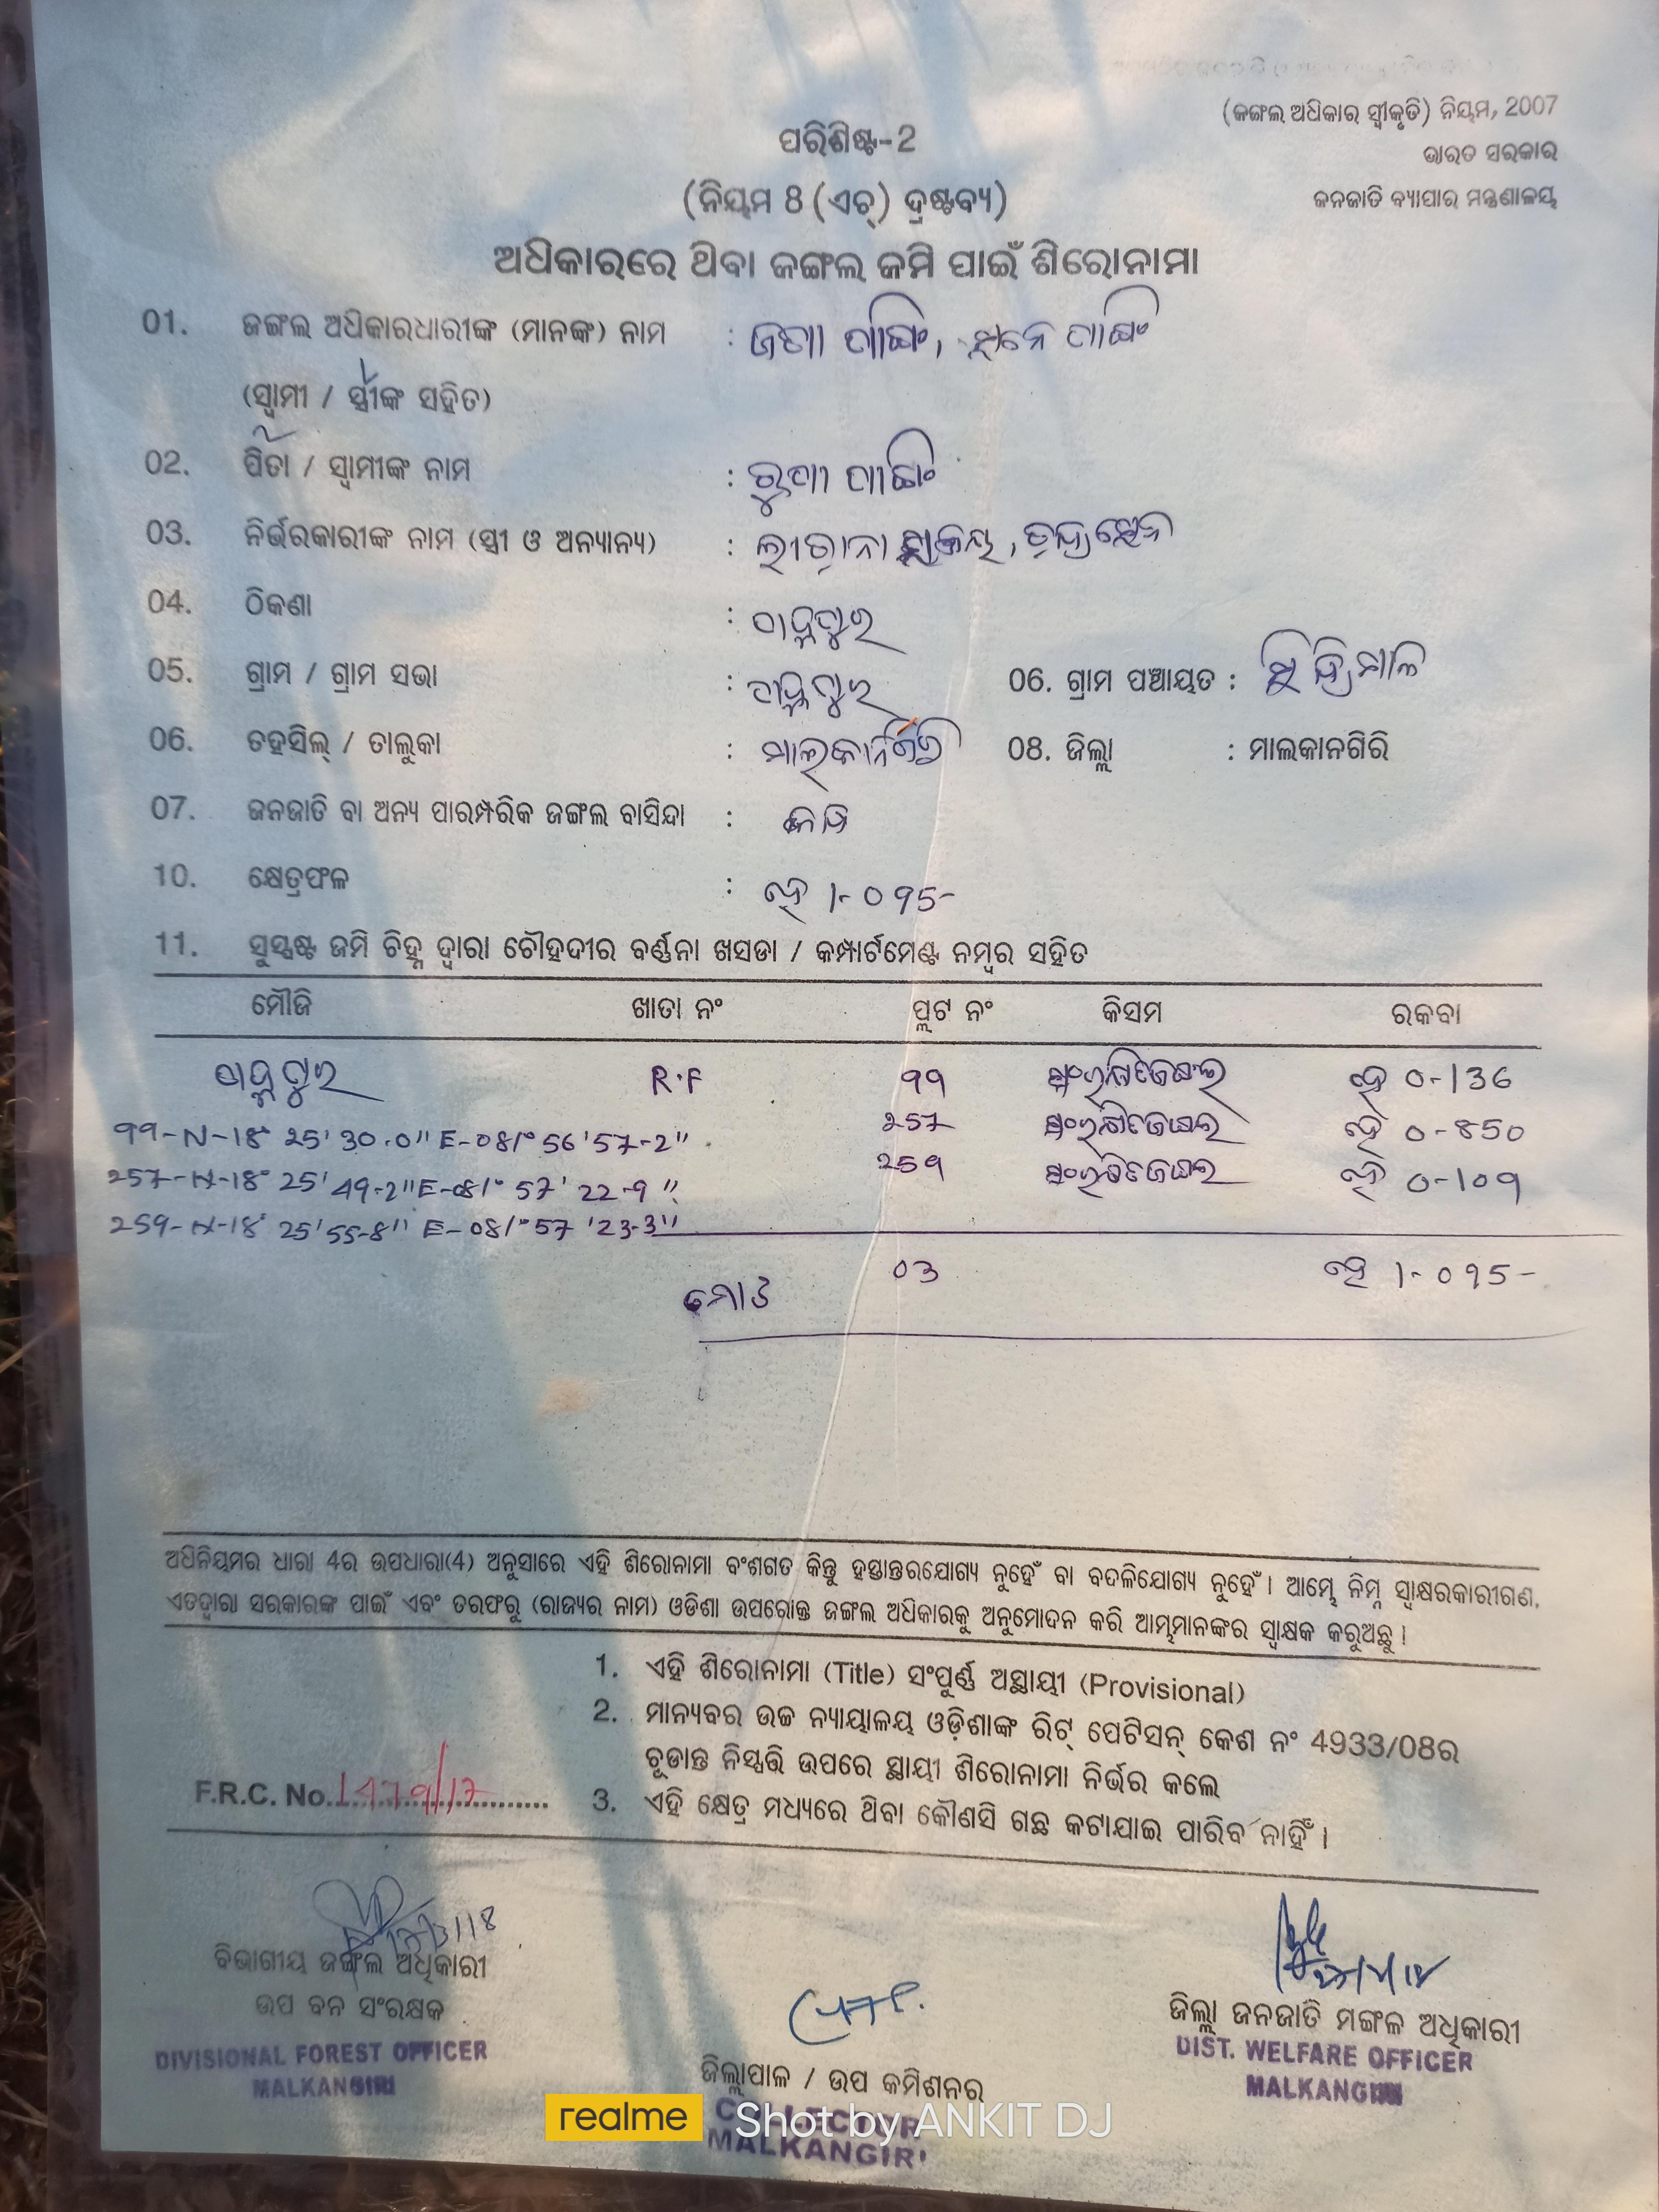 (ଜଙ୍ଗଲ ଅଧିକାର ସ୍ୱୀକୃତି) ନିୟମ, 2007
ଭାରତ ସରକାର
ଜନଜାତି ବ୍ୟାପାର ମନ୍ତ୍ରଣାଳୟ
ପରିଶିଷ୍ଟ-2
(ନିୟମ 8 (ଏଚ୍) ଦ୍ରଷ୍ଟବ୍ୟ)
ଅଧିକାରରେ ଥିବା ଜଙ୍ଗଲ ଜମି ପାଇଁ ଶିରୋନାମା
01. ଜଙ୍ଗଲ ଅଧିକାରଧାରୀଙ୍କ (ମାନଙ୍କ) ନାମ :
(ସ୍ୱାମୀ / ସ୍ତ୍ରୀଙ୍କ ସହିତ)
02. ପିତା / ସ୍ୱାମୀଙ୍କ ନାମ :
03. ନିର୍ଭରକାରୀଙ୍କ ନାମ (ସ୍ତ୍ରୀ ଓ ଅନ୍ୟାନ୍ୟ) :
04. ଠିକଣା :
05. ଗ୍ରାମ / ଗ୍ରାମ ସଭା : 06. ଗ୍ରାମ ପଞ୍ଚାୟତ :
06. ତହସିଲ୍ / ତାଲୁକା : ମାଲକାନଗିରି 08. ଜିଲ୍ଲା : ମାଲକାନଗିରି
07. ଜନଜାତି ବା ଅନ୍ୟ ପାରମ୍ପରିକ ଜଙ୍ଗଲ ବାସିନ୍ଦା :
10. କ୍ଷେତ୍ରଫଳ : ହେ 1-095-
11. ସୁସ୍ପଷ୍ଟ ଜମି ଚିହ୍ନ ଦ୍ୱାରା ଚୌହଦୀର ବର୍ଣ୍ଣନା ଖସଡା / କମ୍ପାର୍ଟମେଣ୍ଟ ନମ୍ବର ସହିତ
ମୌଜି ଖାତା ନଂ ପ୍ଲଟ ନଂ କିସମ ରକବା
R.F 99 ହେ 0-136
99-N-18° 25' 30.0" E-081° 56' 57-2" 257 ହେ 0-850
257-N-18° 25' 49-2" E-081° 57' 22-9" 259 ହେ 0-109
259-N-18° 25' 55-8" E-081° 57' 23-3"
ମୋଟ 03 ହେ 1-095-
ଅଧିନିୟମର ଧାରା 4ର ଉପଧାରା(4) ଅନୁସାରେ ଏହି ଶିରୋନାମା ବଂଶଗତ କିନ୍ତୁ ହସ୍ତାନ୍ତରଯୋଗ୍ୟ ନୁହେଁ ବା ବଦଳିଯୋଗ୍ୟ ନୁହେଁ । ଆମ୍ଭେ ନିମ୍ନ ସ୍ୱାକ୍ଷରକାରୀଗଣ,
ଏତଦ୍ୱାରା ସରକାରଙ୍କ ପାଇଁ ଏବଂ ତରଫରୁ (ରାଜ୍ୟର ନାମ) ଓଡିଶା ଉପରୋକ୍ତ ଜଙ୍ଗଲ ଅଧିକାରକୁ ଅନୁମୋଦନ କରି ଆମ୍ଭମାନଙ୍କର ସ୍ୱାକ୍ଷକ କରୁଅଛୁ ।
1. ଏହି ଶିରୋନାମା (Title) ସଂପୂର୍ଣ୍ଣ ଅସ୍ଥାୟୀ (Provisional)
2. ମାନ୍ୟବର ଉଚ୍ଚ ନ୍ୟାୟାଳୟ ଓଡ଼ିଶାଙ୍କ ରିଟ୍ ପେଟିସନ୍ କେଶ ନଂ 4933/08ର
ଚୂଡାନ୍ତ ନିସ୍ପତ୍ତି ଉପରେ ସ୍ଥାୟୀ ଶିରୋନାମା ନିର୍ଭର କଲେ
F.R.C. No. 1479/17
3. ଏହି କ୍ଷେତ୍ର ମଧ୍ୟରେ ଥିବା କୌଣସି ଗଛ କଟାଯାଇ ପାରିବ ନାହିଁ ।
ବିଭାଗୀୟ ଜଙ୍ଗଲ ଅଧିକାରୀ
ଉପ ବନ ସଂରକ୍ଷକ
DIVISIONAL FOREST OFFICER
MALKANGIRI
ଜିଲ୍ଲାପାଳ / ଉପ କମିଶନର୍
COLLECTOR
MALKANGIRI
ଜିଲ୍ଲା ଜନଜାତି ମଙ୍ଗଳ ଅଧିକାରୀ
DIST. WELFARE OFFICER
MALKANGIRI
realme Shot by ANKIT DJ